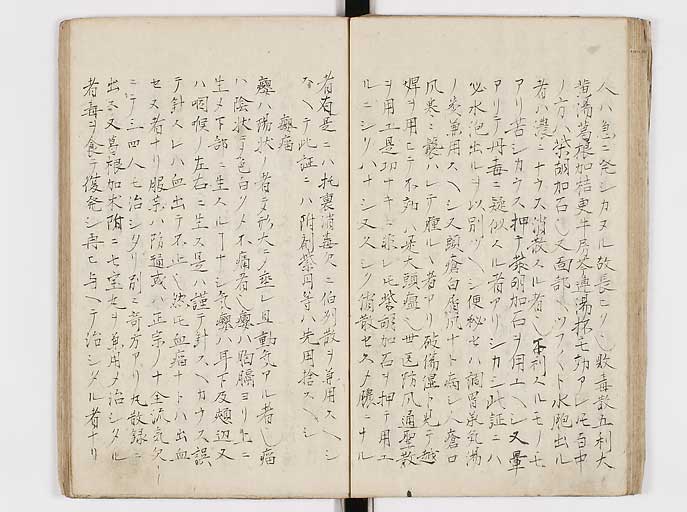 人ハ急ニ発シカヌル故長ニリ〆敗毒散五利大
黄湯葛根加桔更牛房芩連湯抔モ功アレ𪜈百中
ノ方ハ柴胡加石也又面部ヘツフツト水胞出ル
者ハ濃ニナラス消散スル者也不利スルモノモ
アリ苦シカラス押テ柴胡加石ヲ用ユヘシ又暈
アリテ丹毒ニ疑似スル者アリシカシ此証ニハ
必水泡出ルヲ以別ツヘシ便秘セハ調胃承気湯
ノ類兼用スヘシ又頭瘡白屑風ナト病シ人瘡口
風寒ニ襲ハレテ腫ルヽ者アリ破傷湿ト見テ越
婢ヲ用ヒテ不効ハ大頭瘟也世医防風通聖散
ヲ用ユ是功ナキニ非レ𪜈柴胡加石ヲ押テ用ユ
ルニシクハナシ又久シク消散セスメ膿ニナル
者有是ニハ托裏消毒飲ニ伯州散ヲ兼用スヘシ
ナヘテ此証ニハ附剤紫円等ハ先用捨スヘシ
癭瘤
癭ハ陽状ノ者テ形大ニメ垂レ且動気アル者也瘤
ハ陰状テ色白クメ不痛者也癭ハ胸膈ヨリ上ニ
生メ下部ニ生スルヿナシ気癭ハ耳下及頬辺又
ハ咽喉ノ左右ニ生ス是ハ謹テ針スヘカラス誤
テ針スレハ血出テ不止也然𪜈血瘤ナトハ出血
セヌ者ナリ服薬ハ防通或ハ正宗ノ十全流気飲
ニテ三四人モ治シタリ別ニ奇方アリ丸散録ニ
出ス又葛根加朮附ニ七宝丸ヲ兼用メ治シタル
者毒ヲ食テ復発シ再ヒ与ヘテ治シタル者ナリ